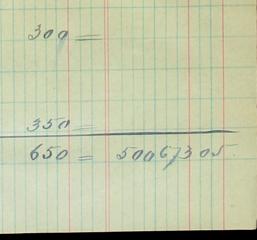 300 =
350 =
650 = 50067305